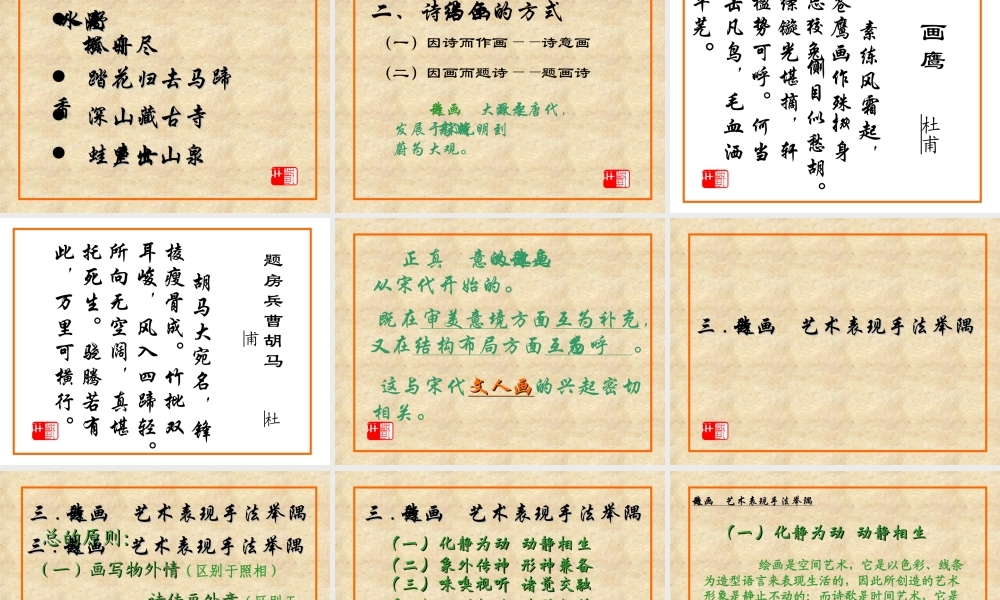 孤舟尽
● 踏花归去马蹄
香
● 深山藏古寺
● 蛙声出山泉
二、诗的方式
（一）因诗而作画－－诗意画
（二）因画而题诗－－题画诗
题画 大唐代，
发展于明到
蔚为大观。
画鹰
杜甫
素练风霜起，
苍鹰画作殊 身
思狡兔侧目似愁胡。
绦镟光堪摘，轩
楹势可呼。何当
击凡鸟，毛血洒
平芜。
题房兵曹胡马
杜
甫
胡马大宛名，锋
棱瘦骨成。竹批双
耳峻，风入四蹄轻。
所向无空阔，真堪
托死生。骁腾若有
此，万里可横行。
正真 意
从宋代开始的。
既在审美意境方面互为补充，
又在结构布局方面互 呼 。
这与宋代文人画的兴起密切
相关。
三．画 艺术表现手法举隅
三．画 艺术表现手法举隅
总的原则：
三．画 艺术表现手法举隅
（一）画写物外情（区别于照相）
三．画 艺术表现手法举隅
（一）化静为动 动静相生
（二）象外传神 形神兼备
（三）味嗅视听 诸觉交融
画 艺术表现手法举隅
（一）化静为动 动静相生
绘画是空间艺术，它是以色彩、线条
为造型语言来表现生活的，因此所创造的艺术
形象是静止不动的；而诗歌是时间艺术，它是